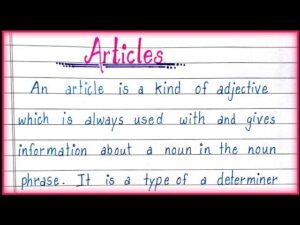 Articles
An article is a kind of adjective
which is always used with and gives
information about a noun in the noun
phrase. It is a type of a determiner